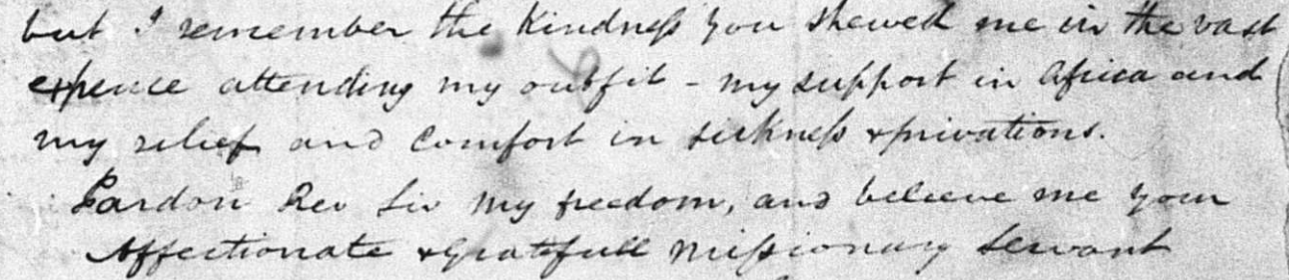 but I remember the Kindness you shewed me in the vast
expence attending my outfit - my support in Africa and
my relief and comfort in sickness & privations.
Pardon Rev Sir my freedom, and believe me your
Affectionate & Gratefull Missionary Servant